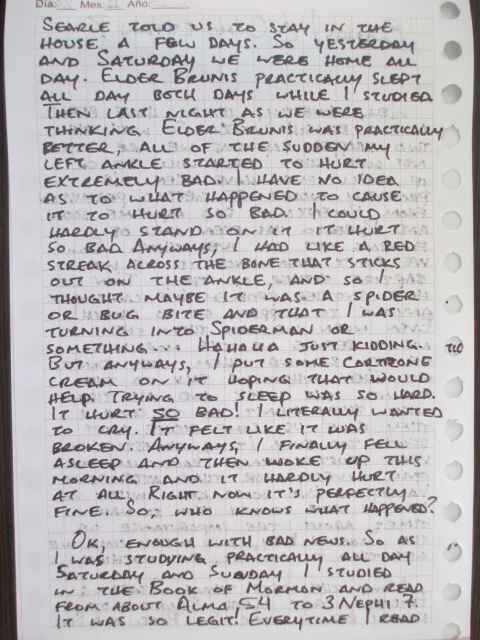 Dia: Mes: Año:
SEARLE TOLD US TO STAY IN THE
HOUSE A FEW DAYS. SO YESTERDAY
AND SATURDAY WE WERE HOME ALL
DAY. ELDER BRUNIS PRACTICALLY SLEPT
ALL DAY BOTH DAYS WHILE I STUDIED
THEN LAST NIGHT AS WE WERE
THINKING ELDER BRUNIS WAS PRACTICALLY
BETTER, ALL OF THE SUDDEN MY
LEFT ANKLE STARTED TO HURT
EXTREMELY BAD. I HAVE NO IDEA
AS TO WHAT HAPPENED TO CAUSE
IT TO HURT SO BAD. I COULD
HARDLY STAND ON IT IT HURT
SO BAD ANYWAYS, I HAD LIKE A RED
STREAK ACROSS THE BONE THAT STICKS
OUT ON THE ANKLE, AND SO I
THOUGHT MAYBE IT WAS A SPIDER
OR BUG BITE AND THAT I WAS
TURNING INTO SPIDERMAN OR
SOMETHING... HAHAHA JUST KIDDING.
BUT ANYWAYS, I PUT SOME CORTIZONE
CREAM ON IT HOPING THAT WOULD
HELP. TRYING TO SLEEP WAS SO HARD.
IT HURT SO BAD! I LITERALLY WANTED
TO CRY. IT FELT LIKE IT WAS
BROKEN. ANYWAYS, I FINALLY FELL
ASLEEP AND THEN WOKE UP THIS
MORNING AND IT HARDLY HURT
AT ALL. RIGHT NOW IT'S PERFECTLY
FINE. SO, WHO KNOWS WHAT HAPPENED?
OK, ENOUGH WITH BAD NEWS. SO AS
I WAS STUDYING PRACTICALLY ALL DAY
SATURDAY AND SUNDAY I STUDIED
IN THE BOOK OF MORMON AND READ
FROM ABOUT ALMA 54 TO 3 NEPHI 7.
IT WAS SO LEGIT! EVERYTIME I READ